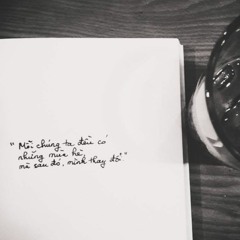 "Mỗi chúng ta đều có
những mùa hè,
mà sau đó, mình thay đổi"